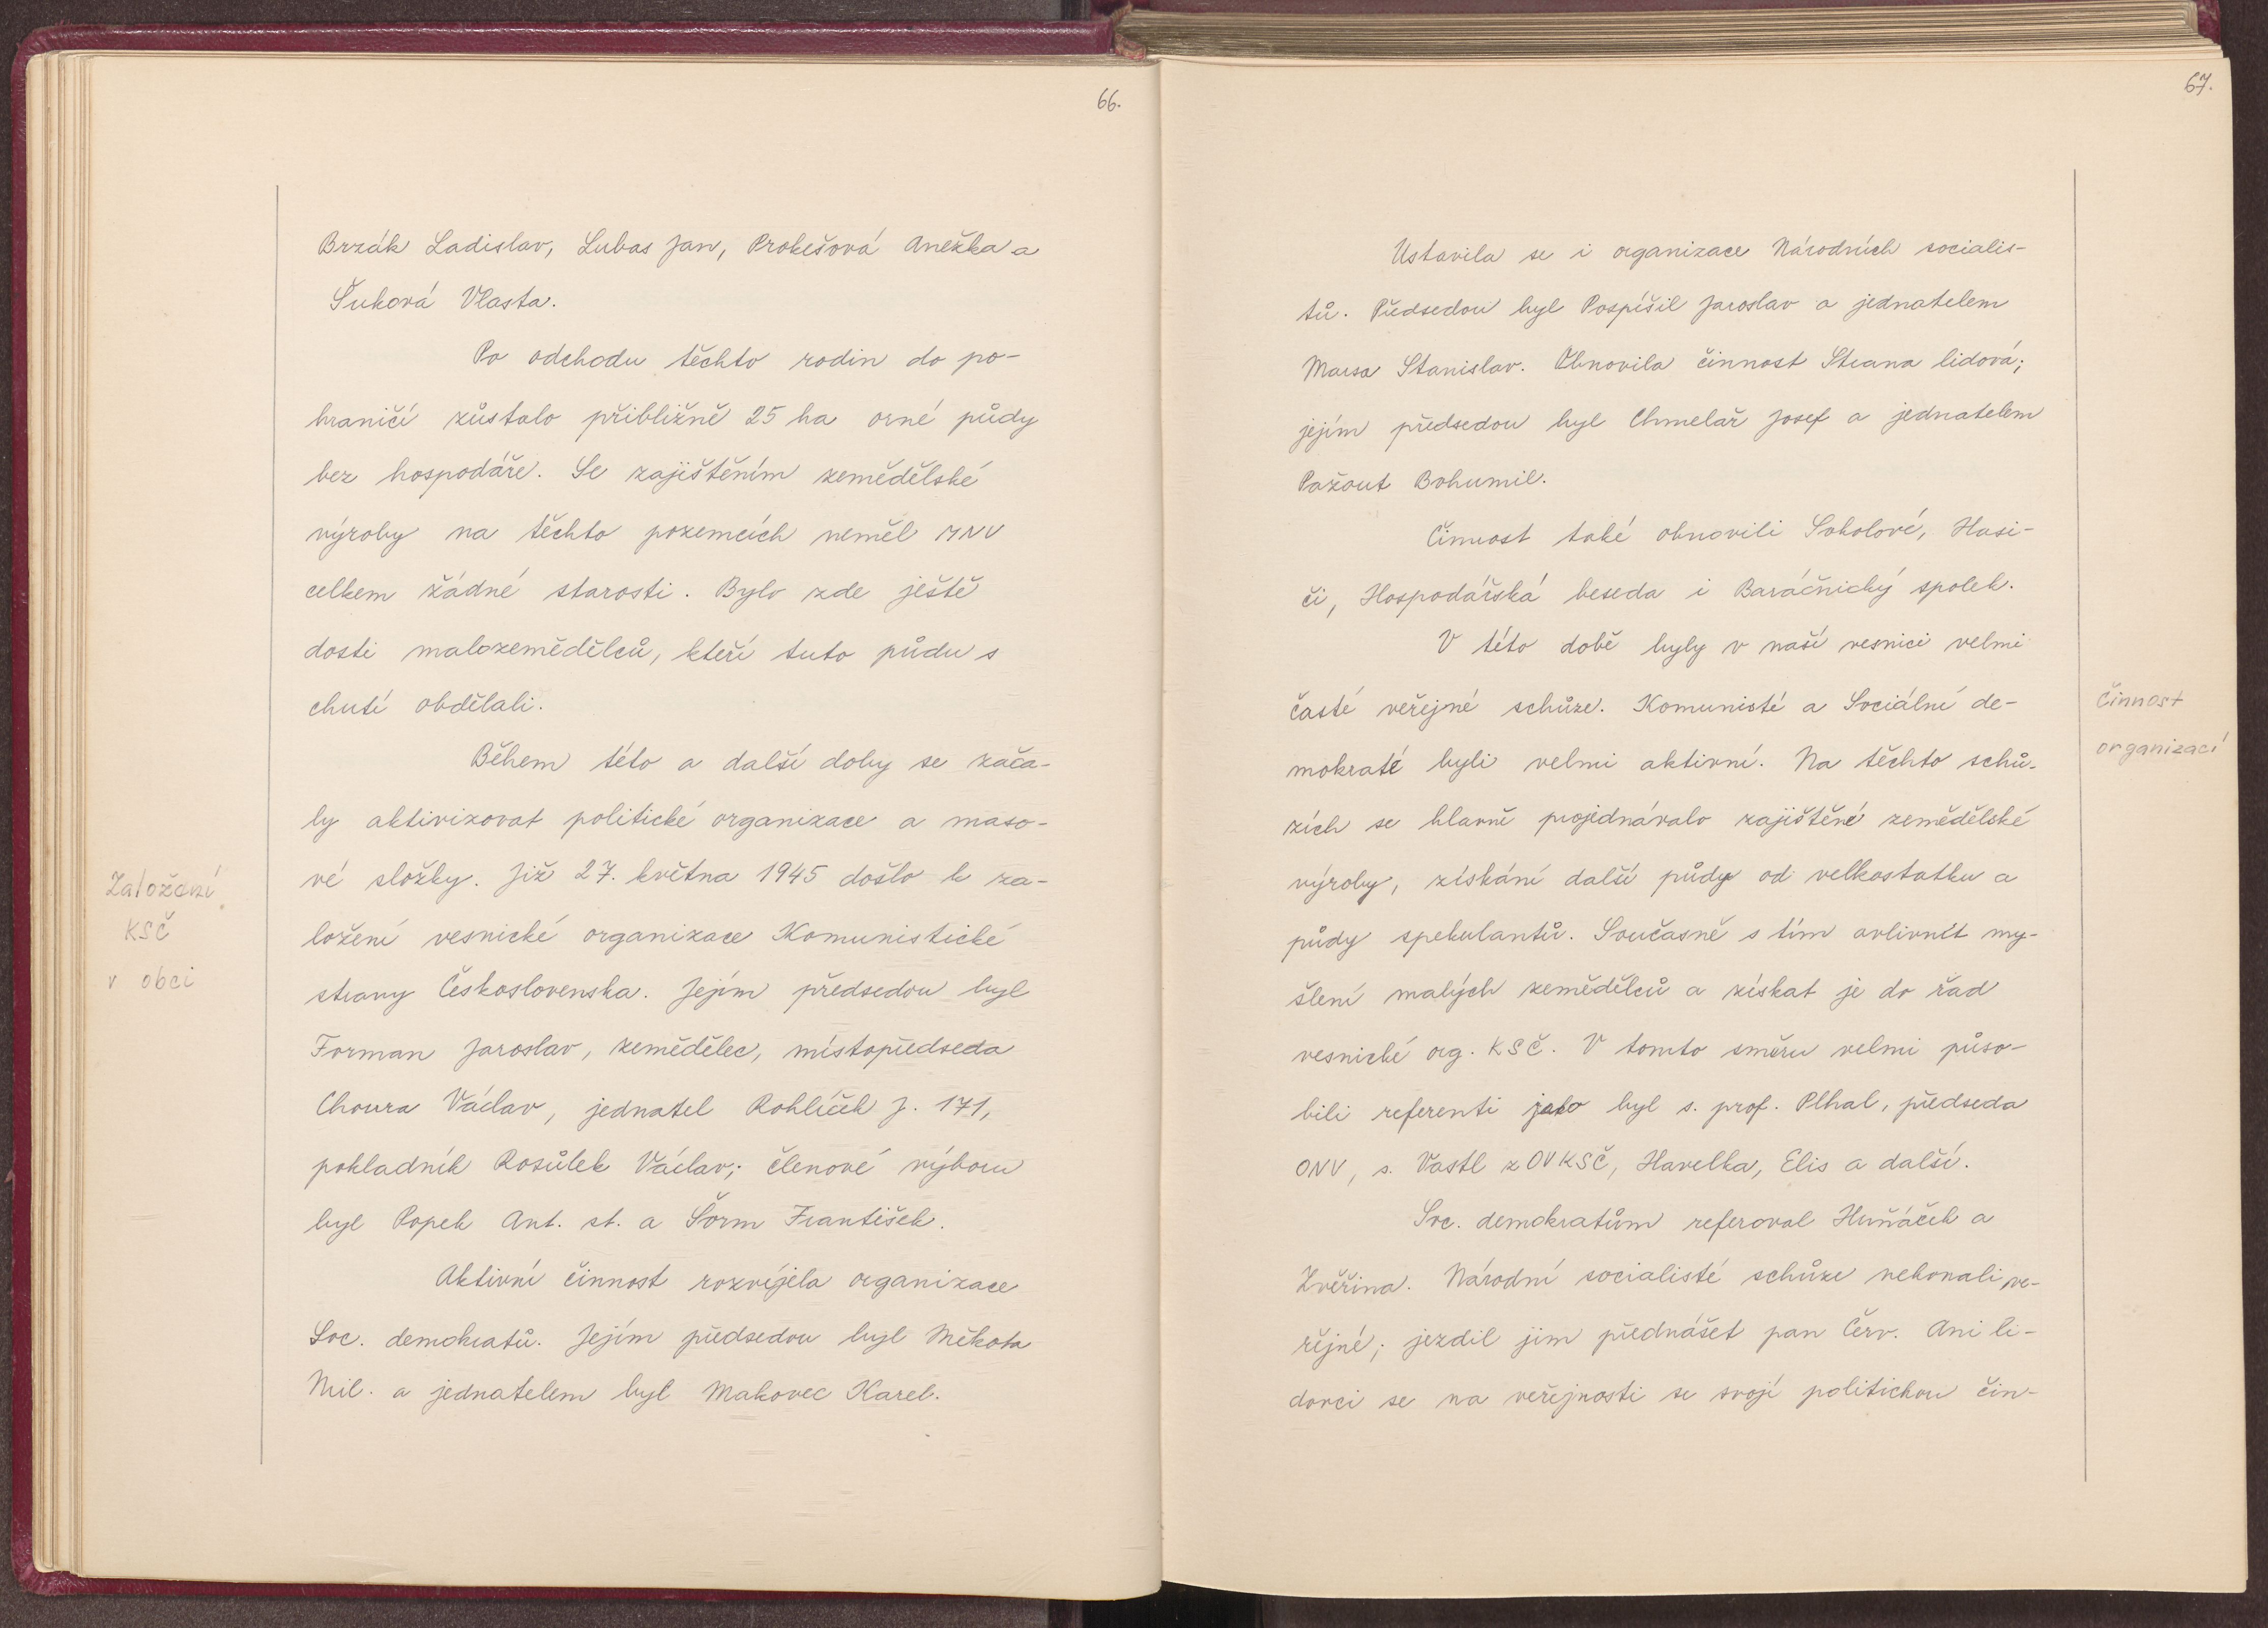 66.
Brzák Ladislav, Lubas Jan, Prokešová Anežka a
Šuková Vlasta.
Po odchodu těchto rodin do po-
hraničí zůstalo přibližně 25 ha orné půdy
bez hospodáře. Se zajištěním zemědělské
výroby na těchto pozemcích neměl MNV
celkem žádné starosti. Bylo zde ještě
dosti malozemědělců, kteří tuto půdu s
chutí obdělali.
Během této a další doby se zača-
ly aktivizovat politické organizace a maso-
vé složky. Již 27. května 1945 došlo k za-
ložení vesnické organizace Komunistické
strany Československa. Jejím předsedou byl
Forman Jaroslav, zemědělec, místopředseda
Choura Václav, jednatel Rohlíček J. 171,
pokladník Rosůlek Václav; členové výboru
byl Popek Ant. st. a Šorm František.
Aktivní činnost rozvíjela organizace
Soc. demokratů. Jejím předsedou byl Měkota
Mil. a jednatelem byl Makovec Karel.
Založení
KSČ
v obci
67.
Ustavila se i organizace Národních socialis-
tů. Předsedou byl Pospíšil Jaroslav a jednatelem
Marsa Stanislav. Obnovila činnost Strana lidová;
jejím předsedou byl Chmelař Josef a jednatelem
Pažout Bohumil.
Činnost také obnovili Sokolové, Hasi-
či, Hospodářská beseda i Baráčnický spolek.
V této době byly v naší vesnici velmi
časté veřejné schůze. Komunisté a Sociální de-
mokraté byli velmi aktivní. Na těchto schů-
zích se hlavně projednávalo zajištění zemědělské
výroby, získání další půdy od velkostatku a
půdy spekulantů. Současně s tím ovlivnit my-
šlení malých zemědělců a získat je do řad
vesnické org. KSČ. V tomto směru velmi půso-
bili referenti jako byl s. prof. Plhal, předseda
ONV, s. Vastl z OV KSČ, Havelka, Elis a další.
Soc. demokratům referoval Huňáček a
Zvěřina. Národní socialisté schůze nekonali ve-
řejné; jezdil jim přednášet pan Červ. Ani li-
dovci se na veřejnosti se svojí politickou čin-
činnost
organizací